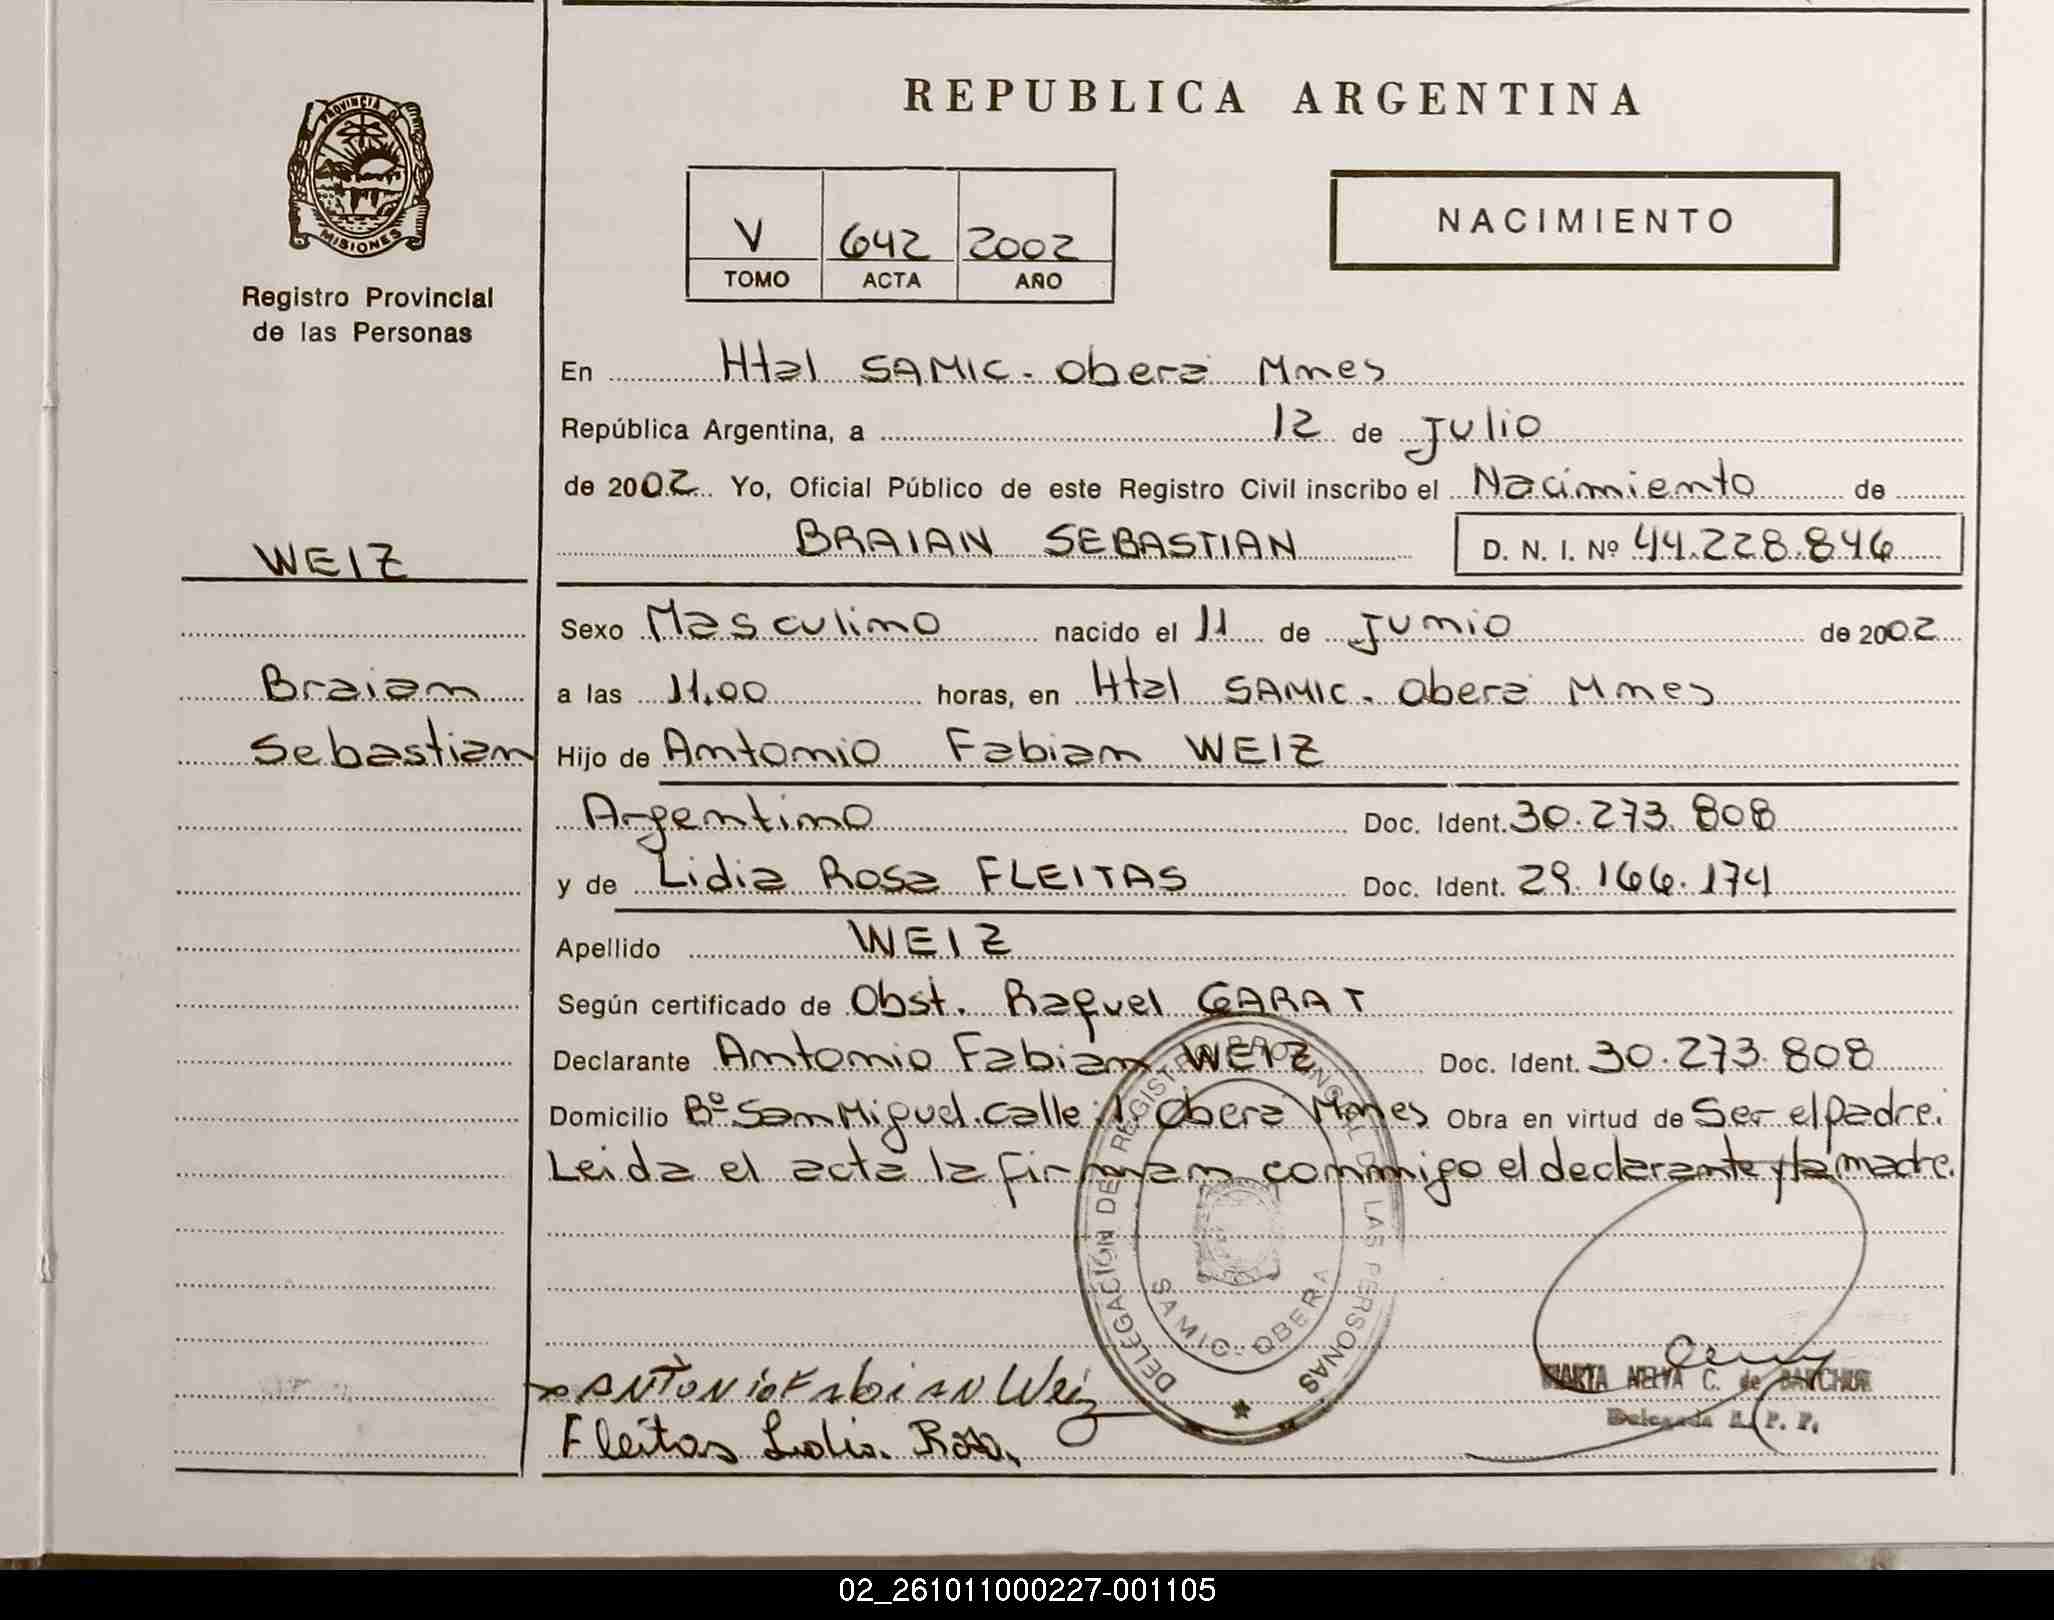 REPUBLICA ARGENTINA
PROVINCIA DE
MISIONES
Registro Provincial
de las Personas
V 642 2002
TOMO ACTA AÑO
NACIMIENTO
En Htal SAMIC - Oberá Mnes
República Argentina, a 12 de Julio
de 2002 Yo, Oficial Público de este Registro Civil inscribo el Nacimiento de
BRAIAN SEBASTIAN D. N. I. Nº 44.228.846
WEIZ
Braian
Sebastian
Sexo Masculino nacido el 11 de Junio de 2002
a las 11.00 horas, en Htal SAMIC - Oberá Mnes
Hijo de Antonio Fabian WEIZ
Argentino Doc. Ident. 30.273.808
y de Lidia Rosa FLEITAS Doc. Ident. 29.166.174
Apellido WEIZ
Según certificado de Obst. Raquel GARAT
Declarante Antonio Fabian WEIZ Doc. Ident. 30.273.808
Domicilio Bº San Miguel. Calle: 1. Oberá Mnes Obra en virtud de Ser el padre.
Leida el acta la firman conmigo el declarante y la madre.
DELEGACIÓN DEL REGISTRO PROVINCIAL DE LAS PERSONAS
SAMIC - OBERA
ANTONio FAbiAN Weiz
Fleitas Lidia Rosa.
MARTA C. de
Delegada R. P. P.
02_261011000227-001105